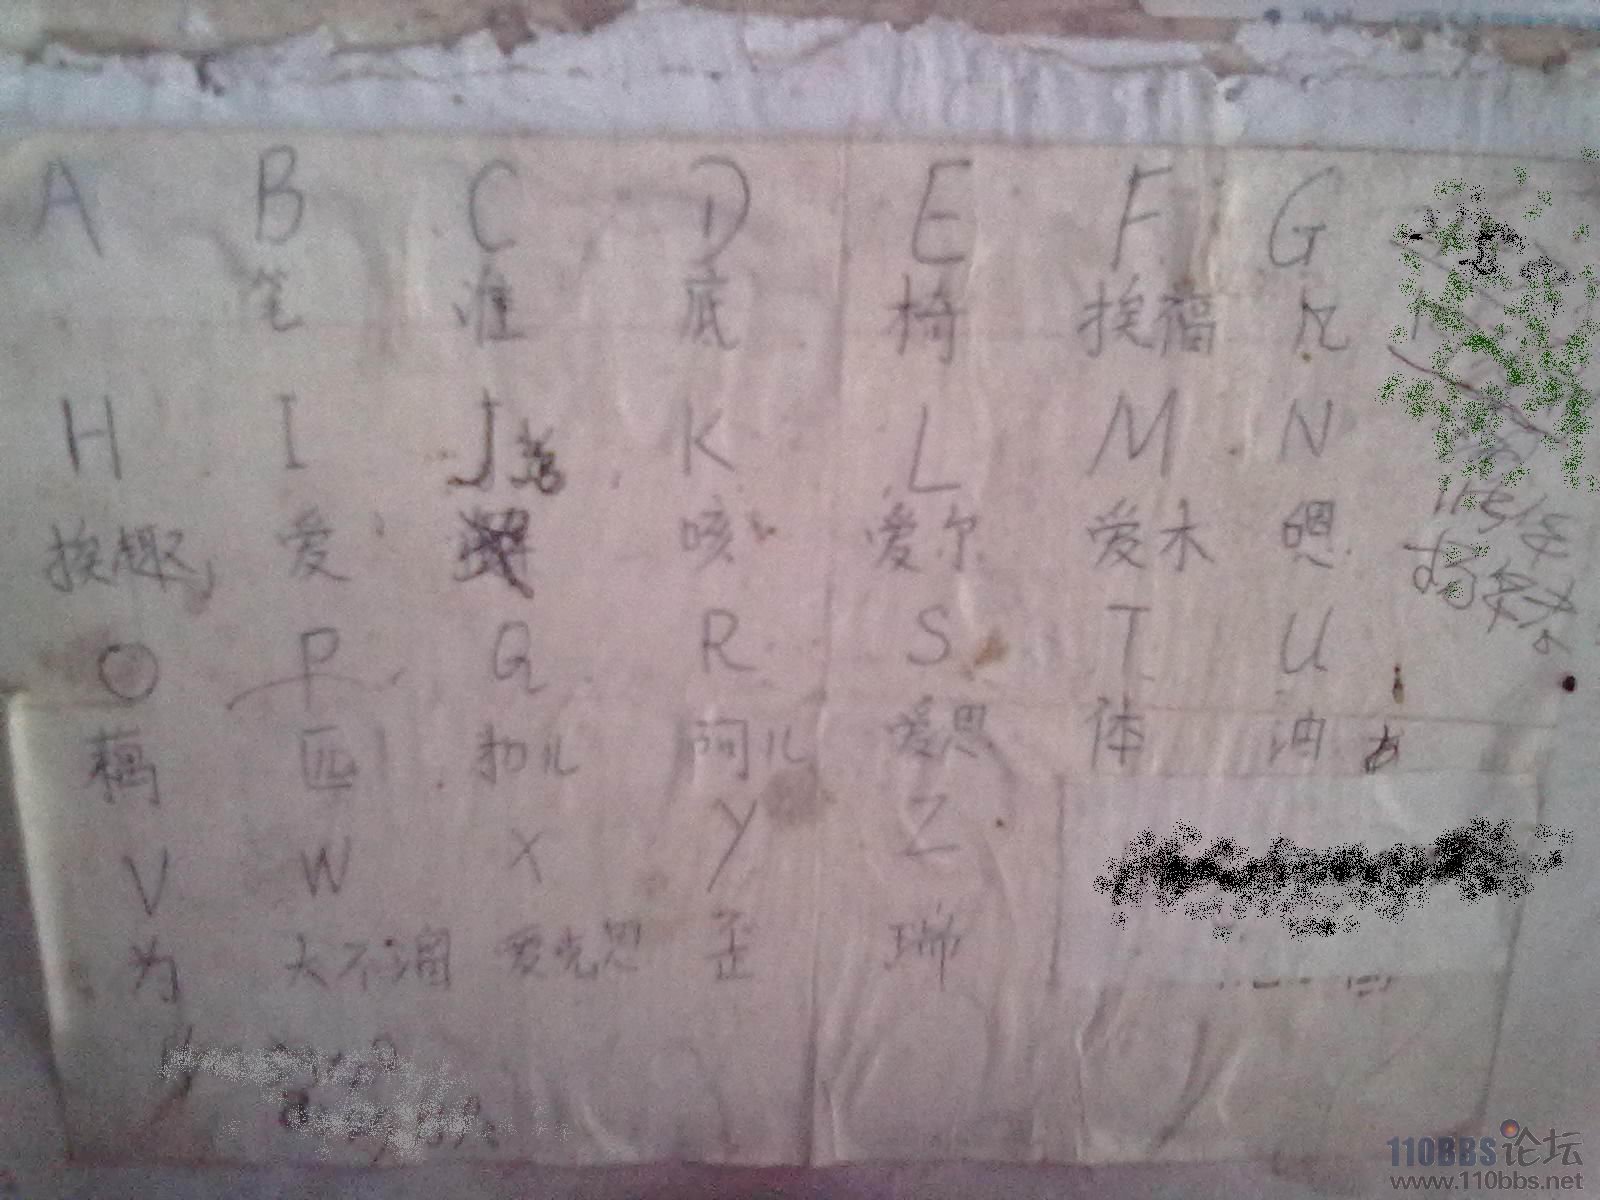 A B C D E F G
笔 谁 底 椅 挨福
H I J K L M N
挨趣 爱 咳 爱尔 爱木 嗯
O P Q R S T U
藕 匹 扣儿 阿儿 爱思 体 油
V W X Y Z
为 大不溜 爱克思 歪 瑞
110BBS论坛
www.110bbs.net